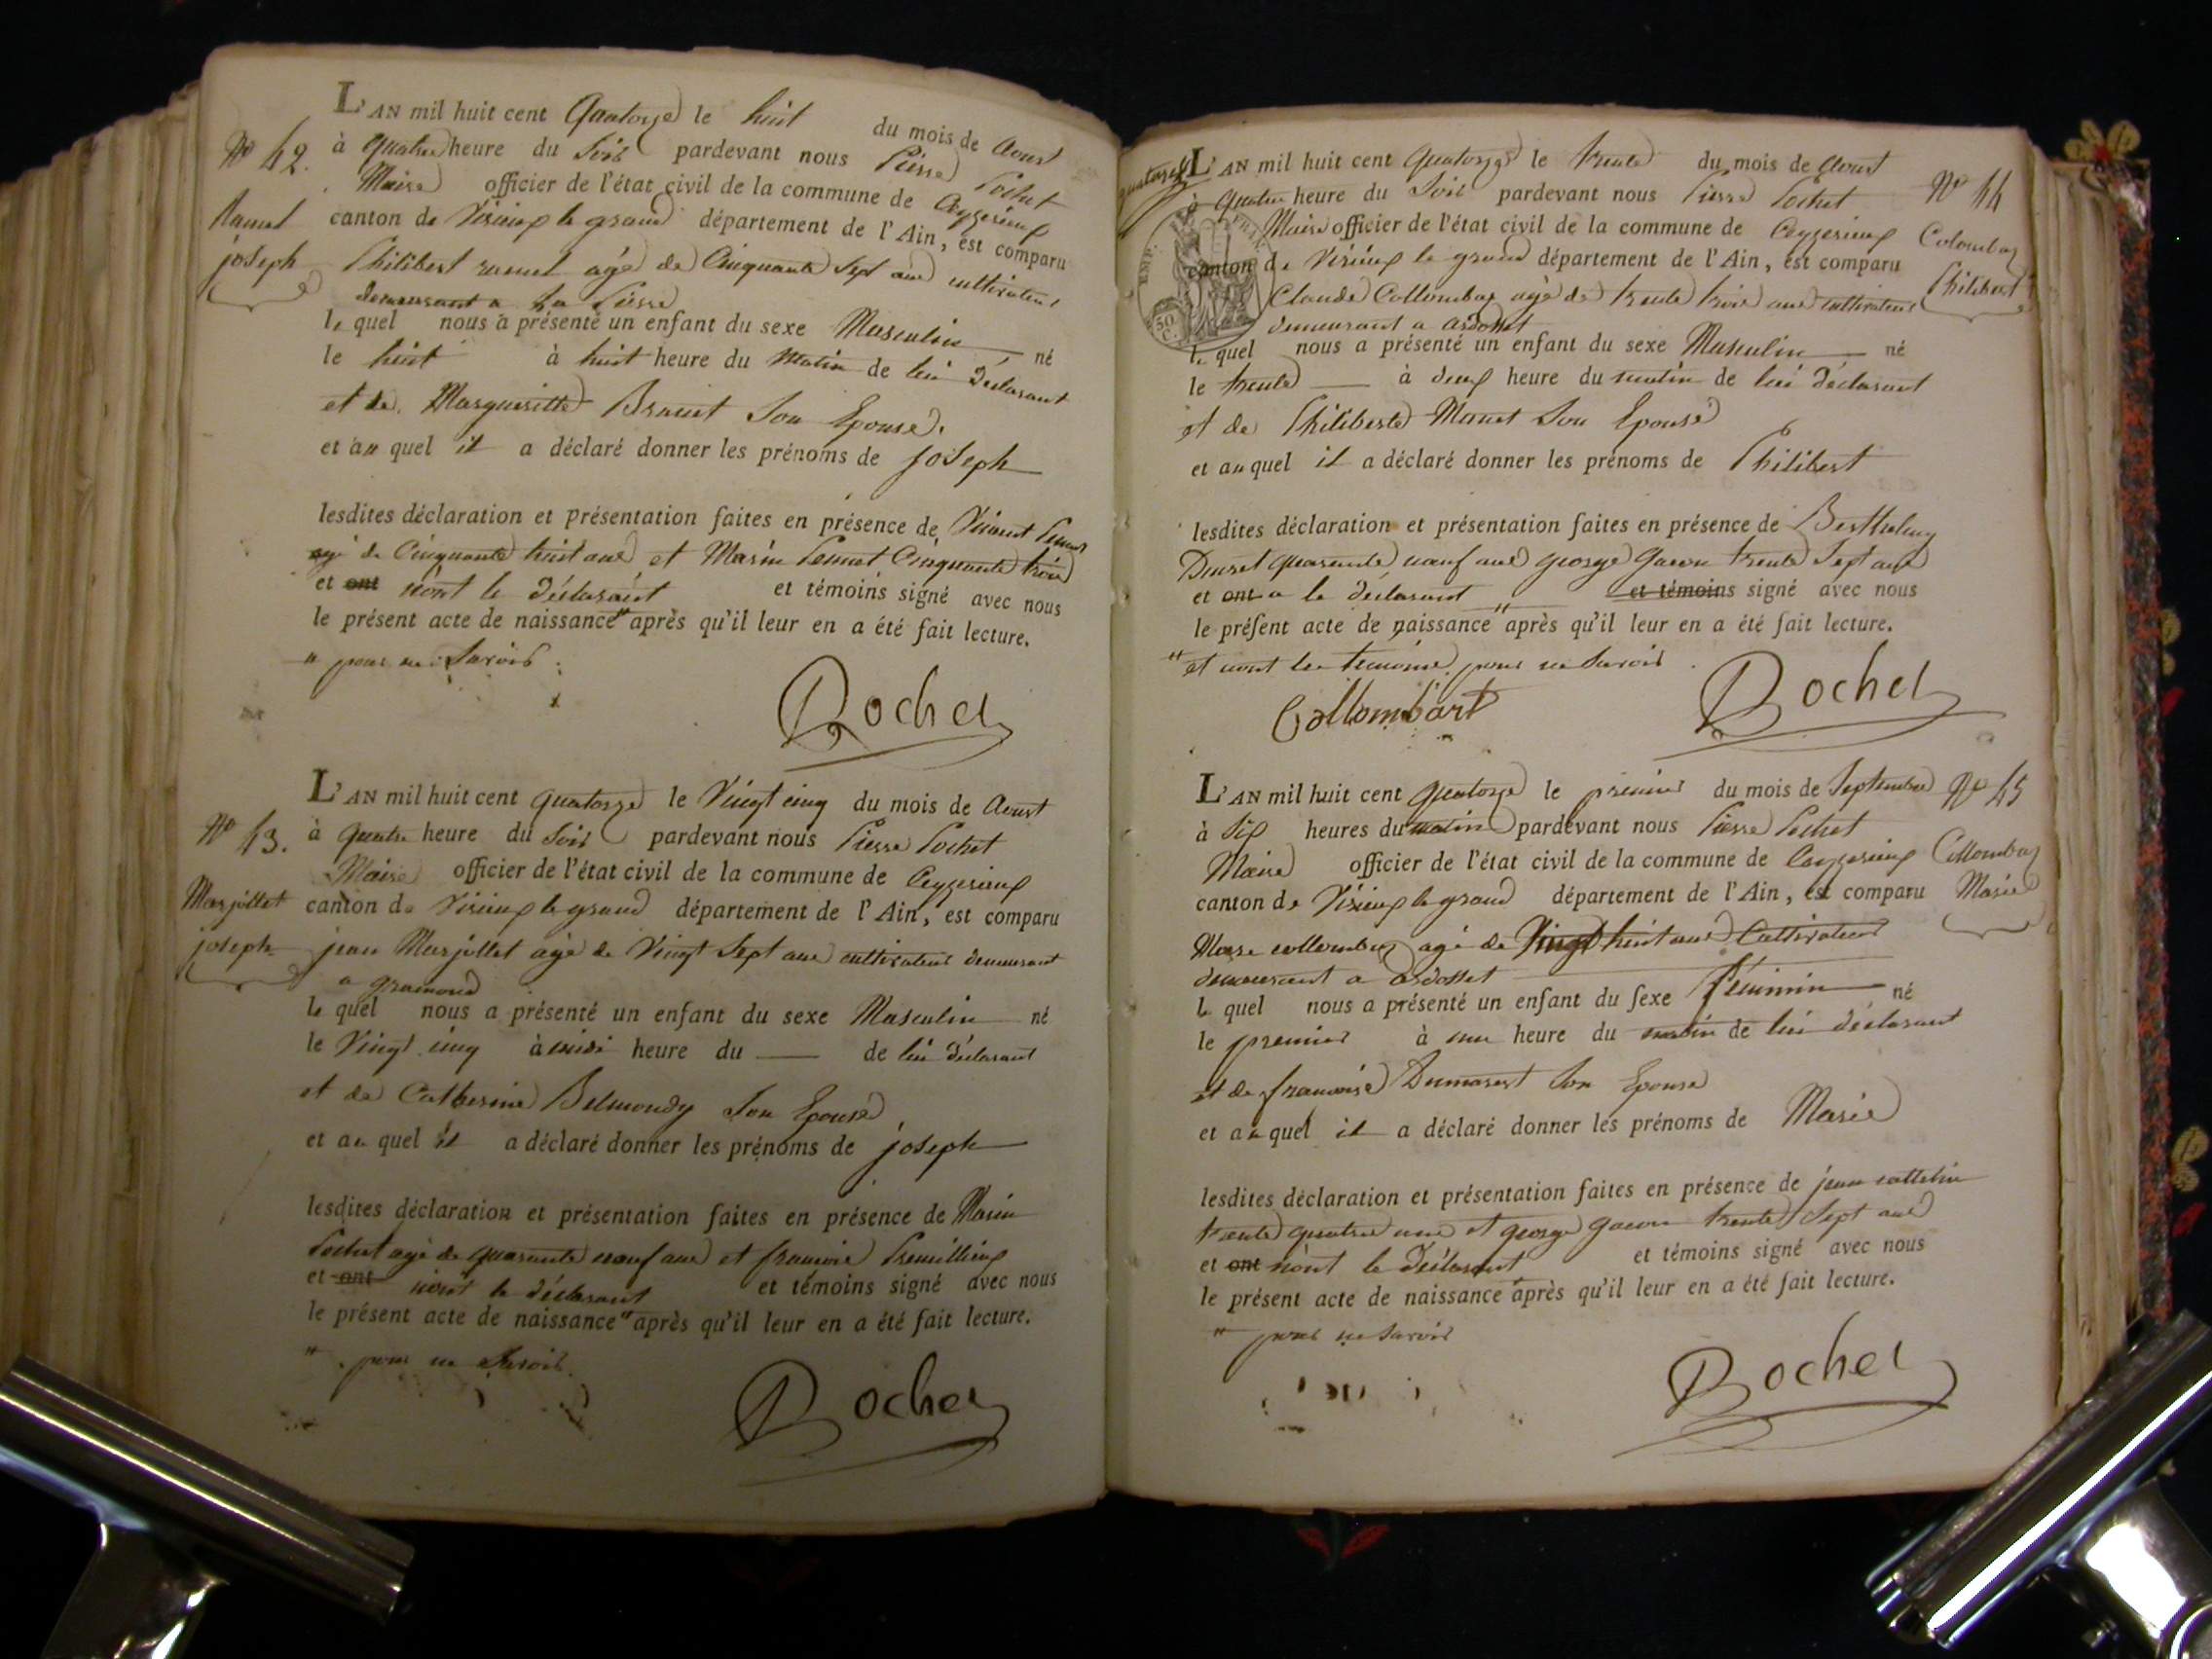 L'AN mil huit cent Quatorze le huit du mois de Aoust
No 42. à Quatre heure du Soir pardevant nous Pierre Pochet
Maire officier de l'état civil de la commune de Ceyzerieux
Ramel canton de Virieux le grand département de l'Ain, est comparu
joseph Philibert ramel agé de Cinquante Sept ans cultivateur
demeurant a
le quel nous a présenté un enfant du sexe Masculin né
le huit à huit heure du matin de lui déclarant
et de Margueritte Son Epouse.
et au quel il a déclaré donner les prénoms de joseph
lesdites déclaration et présentation faites en présence de Vincent
agé de Cinquante huit ans et Marin Cinquante trois
et ont n'ont le déclarant et témoins signé avec nous
le présent acte de naissance " après qu'il leur en a été fait lecture.
" pour ne Savoir
Pochet
L'AN mil huit cent quatorze le Vingt cinq du mois de Aoust
No 43. à quatre heure du Soir pardevant nous Pierre Pochet
Maire officier de l'état civil de la commune de Ceyzerieux
Marjollet canton de Virieux le grand département de l'Ain, est comparu
joseph jean Marjollet agé de Vingt Sept ans cultivateur demeurant
a gramond
le quel nous a présenté un enfant du sexe Masculin né
le Vingt cinq à midi heure du de lui déclarant
et de Catherine Belmondy Son Epouse
et au quel il a déclaré donner les prénoms de joseph
lesdites déclaration et présentation faites en présence de Marin
Pochet agé de quarante neuf ans et françois Premillieux
et ont n'ont le déclarant et témoins signé avec nous
le présent acte de naissance " après qu'il leur en a été fait lecture.
" pour ne Savoir
Pochet
quatorze L'AN mil huit cent Quatorze le trente du mois de Aoust
à quatre heure du Soir pardevant nous Pierre Pochet No 44
Maire officier de l'état civil de la commune de Ceyzerieux Colombaz
canton de Virieux le grand département de l'Ain, est comparu
Claude Collombaz agé de trente trois ans cultivateur Philibert
demeurant a ardosset
EMP. FRAN.
50 C.
le quel nous a présenté un enfant du sexe Masculin né
le trente à deux heure du matin de lui déclarant
et de Philiberte Son Epouse
et au quel il a déclaré donner les prénoms de Philibert
lesdites déclaration et présentation faites en présence de Berthelemy
quarante neuf ans george gacon trente Sept ans
et ont a le déclarant et témoins signé avec nous
le présent acte de naissance " après qu'il leur en a été fait lecture.
" et n'ont les temoins pour ne Savoir
Collombart
Pochet
L'AN mil huit cent quatorze le premier du mois de Septembre No 45
à Six heures du matin pardevant nous Pierre Pochet
Maire officier de l'état civil de la commune de Ceyzerieux Collombaz
canton de Virieux le grand département de l'Ain, est comparu Marie
collombaz agé de Vingt huit ans Cultivateur
demeurant a ardosset
le quel nous a présenté un enfant du sexe féminin né
le premier à une heure du matin de lui déclarant
et de françoise Dumarest Son Epouse
et au quel il a déclaré donner les prénoms de Marie
lesdites déclaration et présentation faites en présence de jean cattelin
trente quatre ans et george gacon trente Sept ans
et ont n'ont le déclarant et témoins signé avec nous
le présent acte de naissance " après qu'il leur en a été fait lecture.
" pour ne Savoir
Pochet